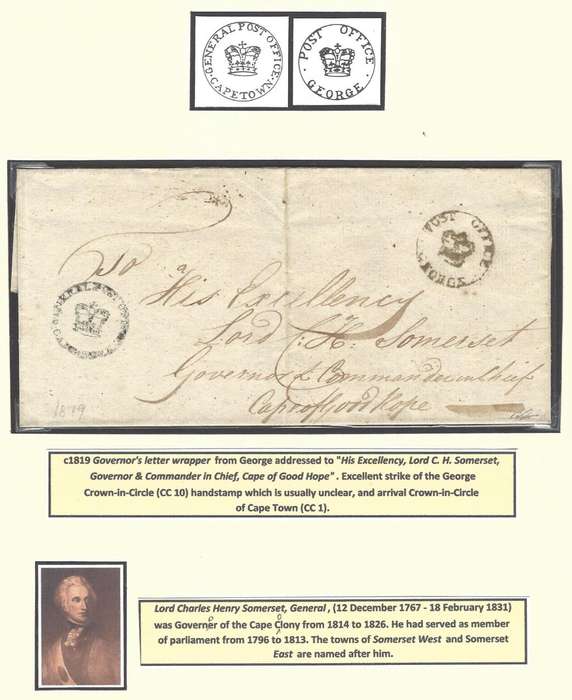 GENERAL POST OFFICE
CAPETOWN
POST OFFICE
GEORGE
To
His Excellency
Lord C. Hy. Somerset
Governor & Commander in Cheif
Cape of Good Hope
POST OFFICE
GEORGE
1819
c1819 Governor's letter wrapper from George addressed to "His Excellency, Lord C. H. Somerset,
Governor & Commander in Chief, Cape of Good Hope". Excellent strike of the George
Crown-in-Circle (CC 10) handstamp which is usually unclear, and arrival Crown-in-Circle
of Cape Town (CC 1).
Lord Charles Henry Somerset, General, (12 December 1767 - 18 February 1831)
was Govern
o
r of the Cape C
o
lony from 1814 to 1826. He had served as member
of parliament from 1796 to 1813. The towns of Somerset West and Somerset
East are named after him.